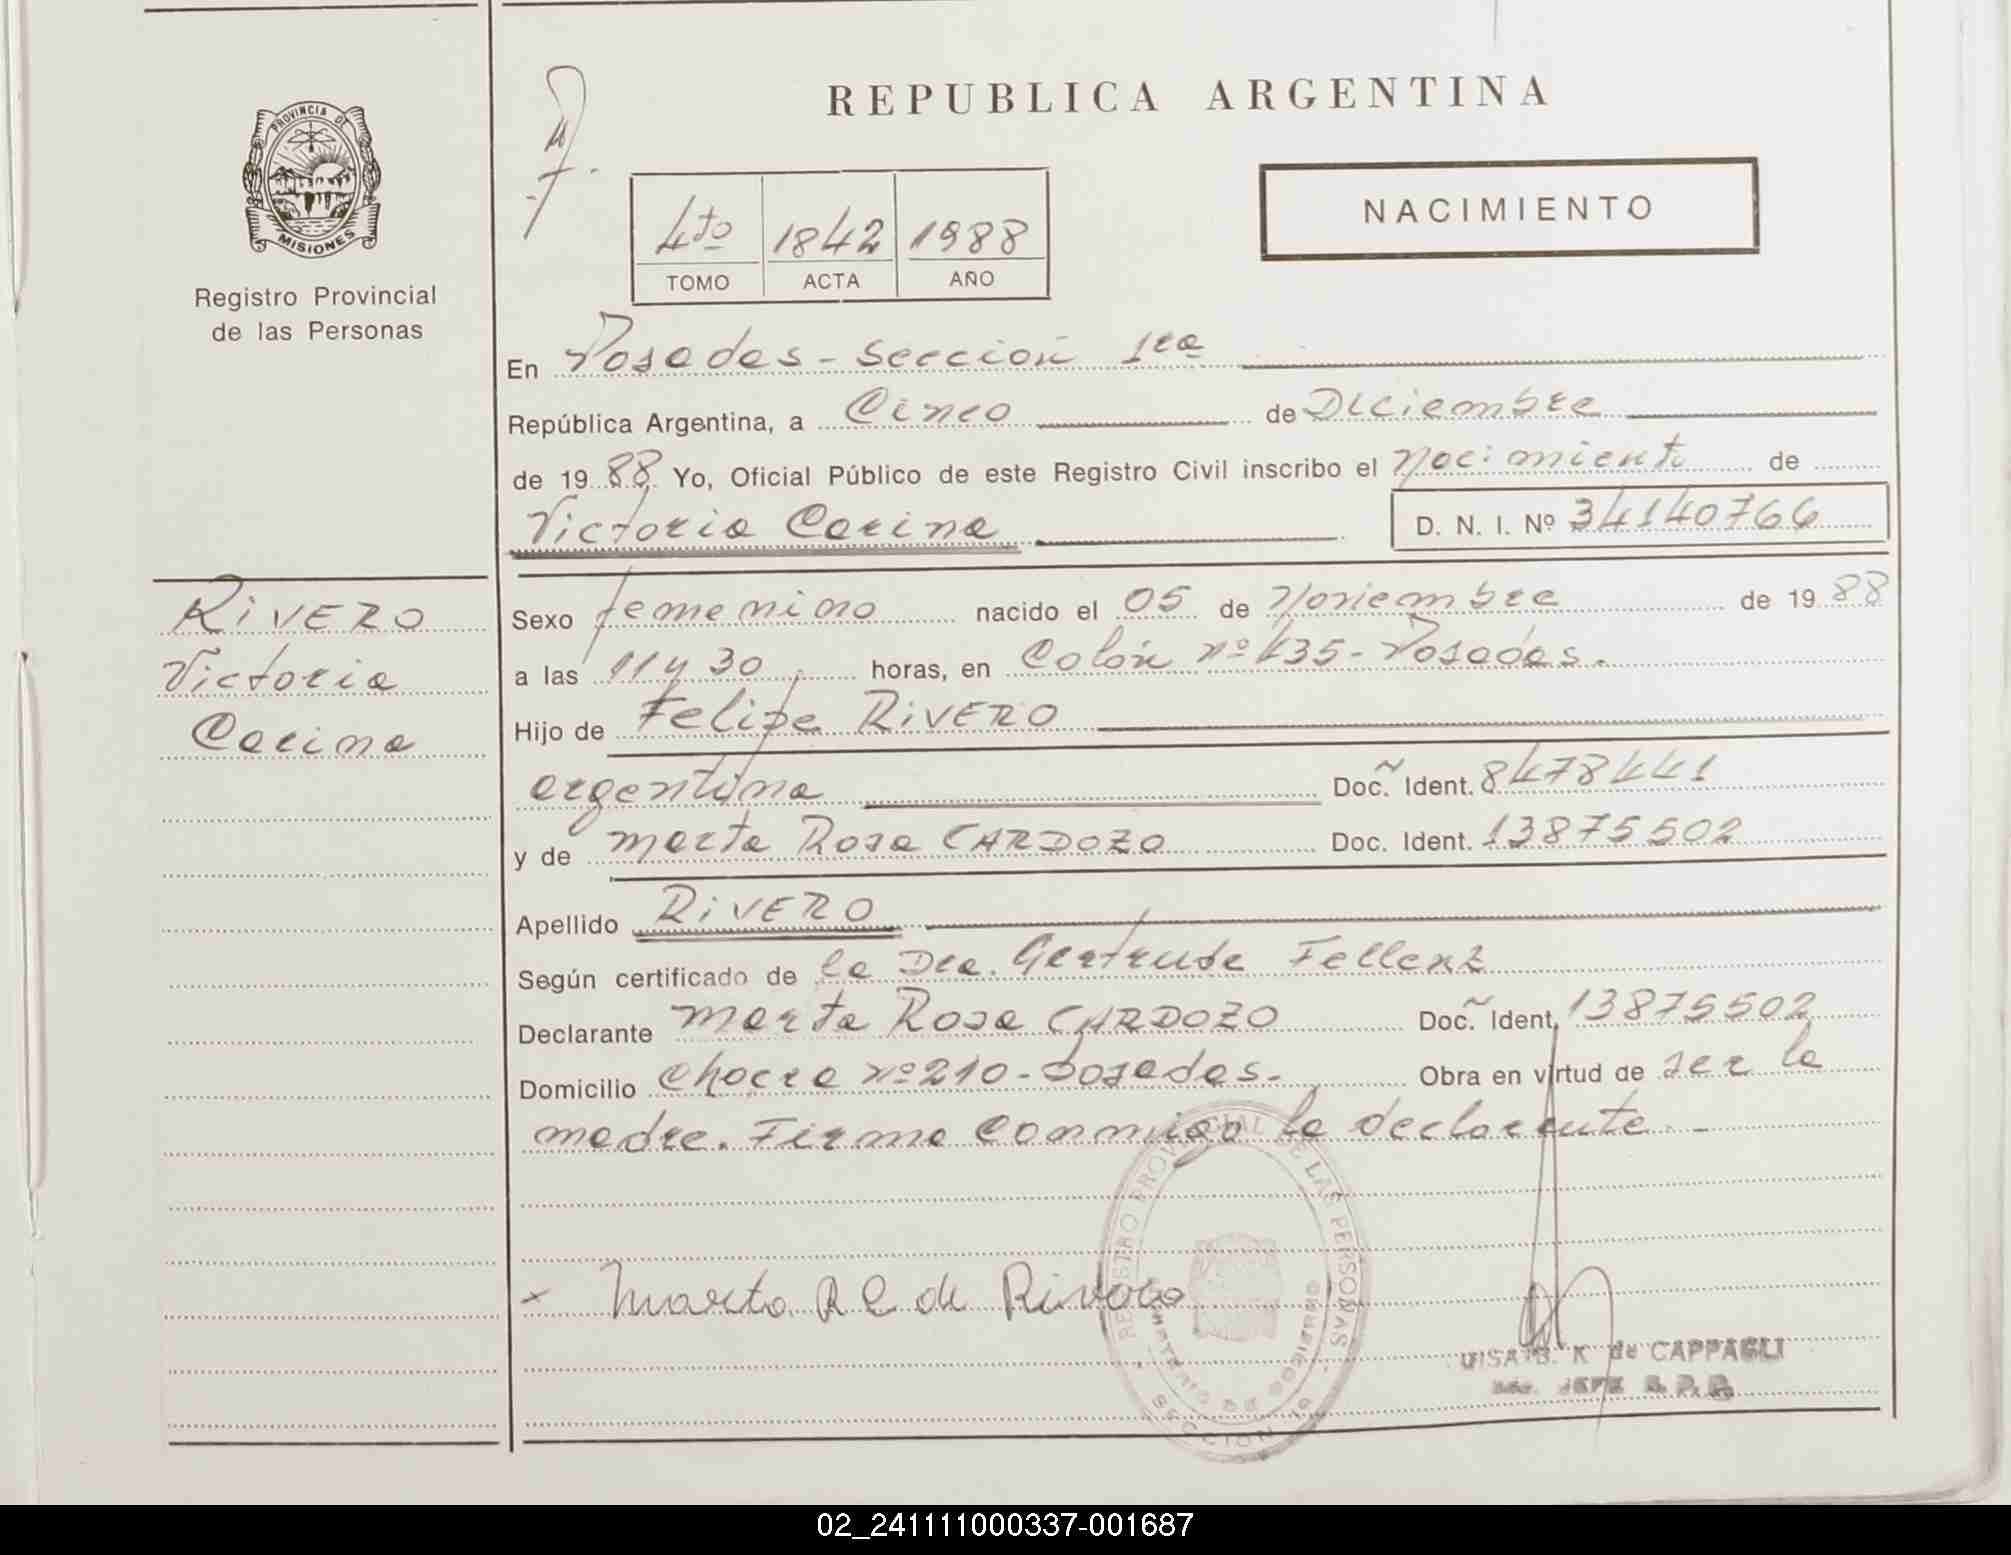 PROVINCIA DE
MISIONES
Registro Provincial
de las Personas
REPUBLICA ARGENTINA
NACIMIENTO
4to 1842 1988
TOMO ACTA AÑO
En Posadas - Sección 1ra
República Argentina, a Cinco de Diciembre
de 1988 Yo, Oficial Público de este Registro Civil inscribo el Nacimiento de
Victoria Carina D. N. I. Nº 34140766
RIVERO
Victoria
Carina
Sexo femenino nacido el 05 de Noviembre de 1988
a las 11 y 30 horas, en Colón nº 435 - Posadas.
Hijo de Felipe RIVERO
argentina Doc. Ident. 8478441
y de Marta Rosa CARDOZO Doc. Ident. 13875502
Apellido RIVERO
Según certificado de la Dra. Gertrude Fellenz
Declarante Marta Rosa CARDOZO Doc. Ident. 13875502
Domicilio Chacra nº 210 - Posadas. Obra en virtud de ser la
madre. Firma conmigo la declarante. -
x Marta R C de Rivero
REGISTRO PROVINCIAL DE LAS PERSONAS
MINISTERIO DE GOBIERNO
SECCION 1a
K de CAPPAGLI
JEFE
02_241111000337-001687